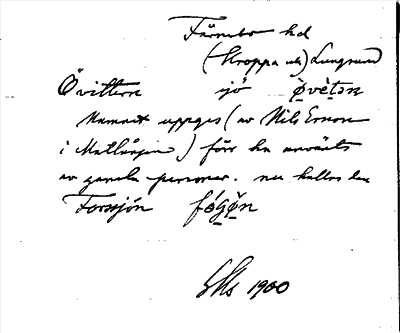 Färnebo hd
(Kroppa sn) Lungsund
Övittern sjö
Namnet uppges (av Nils Ersson
i Matlången) förr ha använts
av gamla personer. nu kallas den
Forssjön
1900